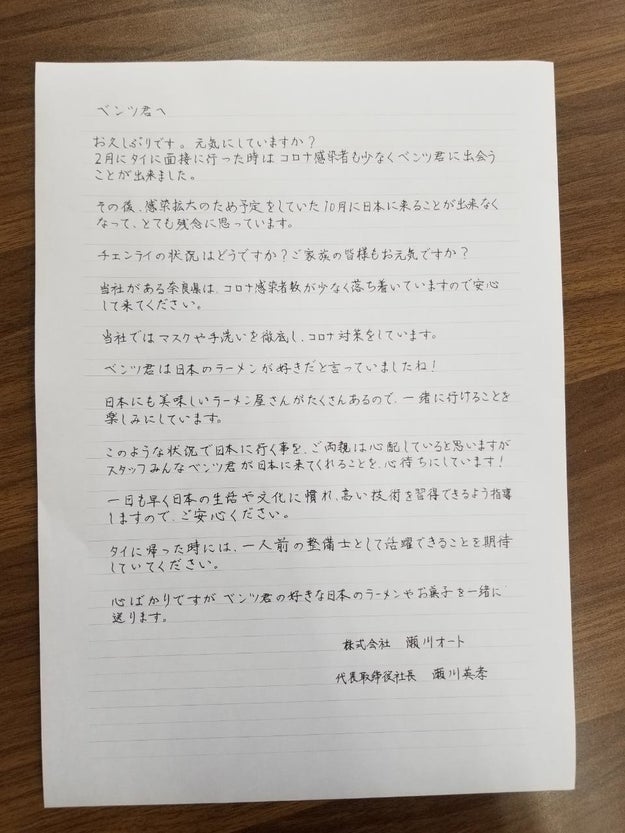 ベンツ君へ
お久しぶりです。元気にしていますか?
2月にタイに面接に行った時はコロナ感染者も少なくベンツ君に出会う
ことが出来ました。
その後、感染拡大のため予定をしていた10月に日本に来ることが出来なく
なって、とても残念に思っています。
チェンライの状況はどうですか?ご家族の皆様もお元気ですか?
当社がある奈良県は、コロナ感染者数が少なく落ち着いていますので安心
して来てください。
当社ではマスクや手洗いを徹底し、コロナ対策をしています。
ベンツ君は日本のラーメンが好きだと言っていましたね!
日本にも美味しいラーメン屋さんがたくさんあるので、一緒に行けることを
楽しみにしています。
このような状況で日本に行く事を、ご両親は心配していると思いますが
スタッフみんなベンツ君が日本に来てくれることを、心待ちにしています!
一日も早く日本の生活や文化に慣れ、高い技術を習得できるよう指導
しますので、ご安心ください。
タイに帰った時には、一人前の整備士として活躍できることを期待
していてください。
心ばかりですが ベンツ君の好きな日本のラーメンやお菓子を一緒に
送ります。
株式会社 瀬川オート
代表取締役社長 瀬川英孝